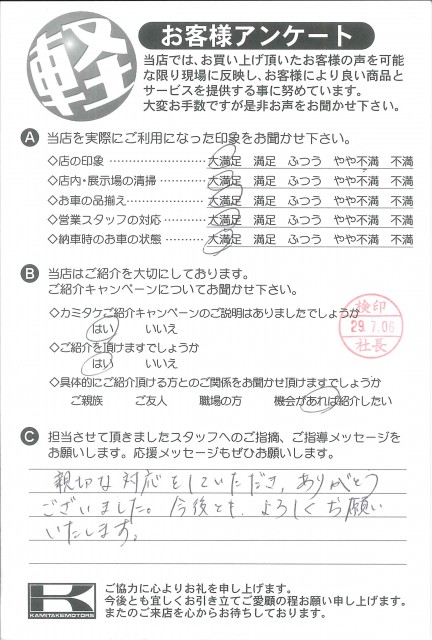 軽
お客様アンケート
当店では、お買い上げ頂いたお客様の声を可能
な限り現場に反映し、お客様により良い商品と
サービスを提供する事に努めています。
大変お手数ですが是非お声をお聞かせ下さい。
A 当店を実際にご利用になった印象をお聞かせ下さい。
◇店の印象 ………………… 大満足 満足 ふつう やや不満 不満
◇店内・展示場の清掃 ………… 大満足 満足 ふつう やや不満 不満
◇お車の品揃え ……………… 大満足 満足 ふつう やや不満 不満
◇営業スタッフの対応 ………… 大満足 満足 ふつう やや不満 不満
◇納車時のお車の状態 ………… 大満足 満足 ふつう やや不満 不満
B 当店はご紹介を大切にしております。
ご紹介キャンペーンについてお聞かせ下さい。
◇カミタケご紹介キャンペーンのご説明はありましたでしょうか
はい いいえ
◇ご紹介を頂けますでしょうか
はい いいえ
検印
29.7.06
社長
◇具体的にご紹介頂ける方とのご関係をお聞かせ頂けますでしょうか
ご親族 ご友人 職場の方 機会があれば紹介したい
C 担当させて頂きましたスタッフへのご指摘、ご指導メッセージを
お願いします。応援メッセージもぜひお願いします。
親切な対応をしていただき、ありがとう
ございました。今後とも、よろしくお願い
いたします。
K
KAMITAKEMOTORS
ご協力に心よりお礼を申し上げます。
今後とも宜しくお引き立てご愛顧の程お願い申し上げます。
またのご来店を心からお待ちしております。